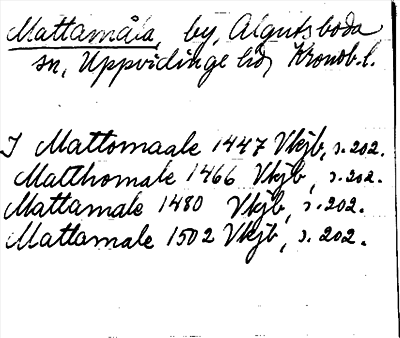 Mattamåla, by, Algutsboda
sn, Uppvidinge hd, Kronob. l.
I Mattomaale 1447 Vkjb, s. 202.
Matthomale 1466 Vkjb, s. 202.
Mattamale 1480 Vkjb, s. 202.
Mattamale 1502 Vkjb, s. 202.